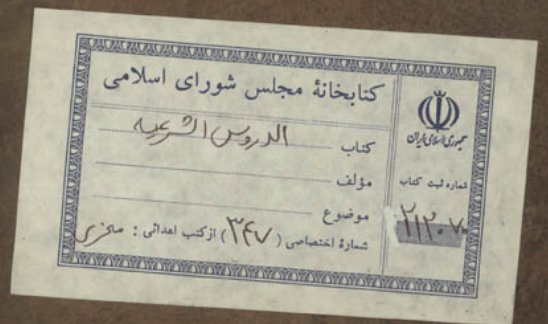 کتابخانهٔ مجلس شورای اسلامی
کتاب الدروس الشرعیه
مؤلف
موضوع
شمارهٔ اختصاصی (۳۴۷) از کتب اهدائی :
جمهوری اسلامی ایران
شماره ثبت کتاب